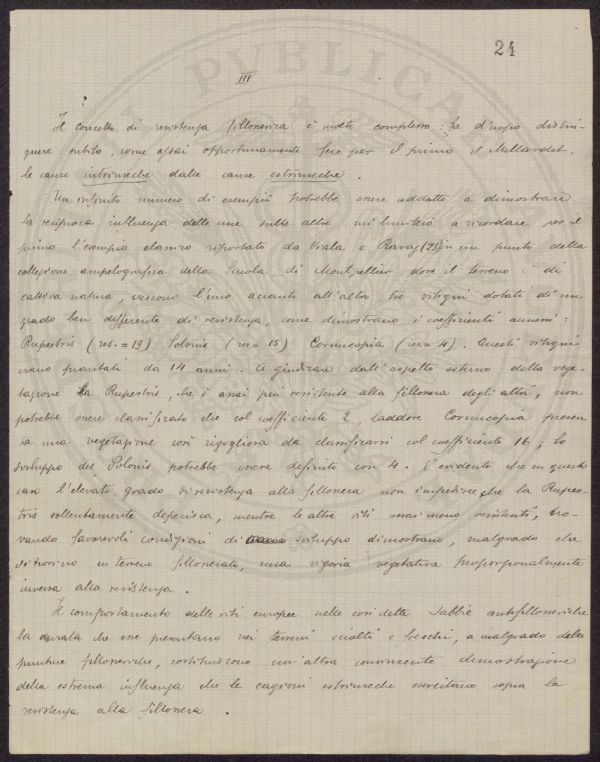 PUBLICA
24
III
Il concetto di resistenza fillosserica è molto complesso: fa d'uopo distin-
guere subito, come assai opportunamente fece per il primo il Millardet,
le cause intrinseche dalle cause estrinseche.
Un infinito numero di esempii potrebbe essere addotto a dimostrare
la reciproca influenza delle une sulle altre. mi limiterò a ricordare per il
primo l'esempio classico riportato da Viala e Ravaz (28) in un punto della
collezione ampelografica della Scuola di Montpellier, dove il terreno è di
cattiva natura, crescono l'uno accanto all'altro tre vitigni dotati di un
grado ben differente di resistenza, come dimostrano i coefficienti annessi:
Rupestris (res. = 19) Solonis (res = 15) Cornucopia (res. = 4). Questi vitigni
erano piantati da 14 anni. A giudicare dall'aspetto esterno della vege-
tazione la Rupestris, che è assai più resistente alla fillossera degli altri, non
potrebbe essere classificato che col coefficiente 2, laddove Cornucopia presen
ta una vegetazione così rigogliosa da classificarsi col coefficiente 16; lo
sviluppo del Solonis potrebbe essere definito con 4. È evidente che in questo
caso l'elevato grado di resistenza alla fillossera non impedisce che la Rupes-
tris sollentamente deperisca, mentre le altre viti assai meno resistenti, tro-
vando favorevoli condizioni di sviluppo dimostrano, malgrado che
si trovino in terreno fillosserato, una vigoria vegetativa proporzionalmente
inversa alla resistenza.
Il comportamento delle viti europee nelle così dette sabbie antifillosseriche
la durata che esse presentano nei terreni sciolti e freschi, a malgrado delle
punture fillosseriche, costituiscono un'altra convincente dimostrazione
della estrema influenza che le cagioni estrinseche esercitano sopra la
resistenza alla fillossera.